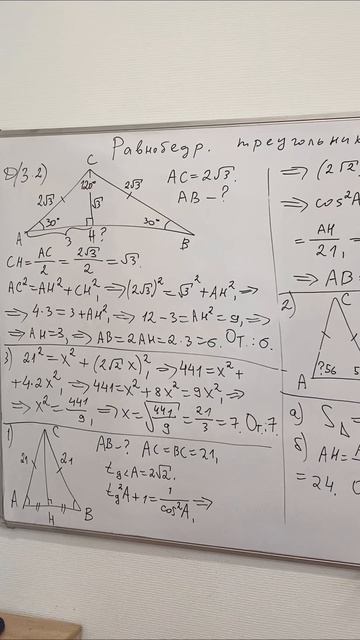 Равнобедр. треугольник
Д/З.2)
C
120°
2√3
2√3
√3
30°
30°
A
3
H
?
B
AC = 2√3.
AB - ?
CH = AC/2 = 2√3/2 = √3.
AC² = AH² + CH², ⇒ (2√3)² = √3² + AH², ⇒
⇒ 4·3 = 3 + AH², ⇒ 12 - 3 = AH² = 9, ⇒
⇒ AH = 3, ⇒ AB = 2AH = 2·3 = 6. От.: 6.
3) 21² = x² + (2√2 x)², ⇒ 441 = x² +
+ 4·2x², ⇒ 441 = x² + 8x² = 9x², ⇒
⇒ x² = 441/9, ⇒ x = √441/9 = 21/3 = 7. От.: 7.
1)
C
21
21
A
H
B
AB - ? AC = BC = 21,
tg∠A = 2√2.
tg²A + 1 = 1/cos²A, ⇒
⇒ (2√2
⇒ cos²A
= AH/21,
⇒ AB
2)
C
A
?56
5
а) S△ =
б) AH =
= 24.